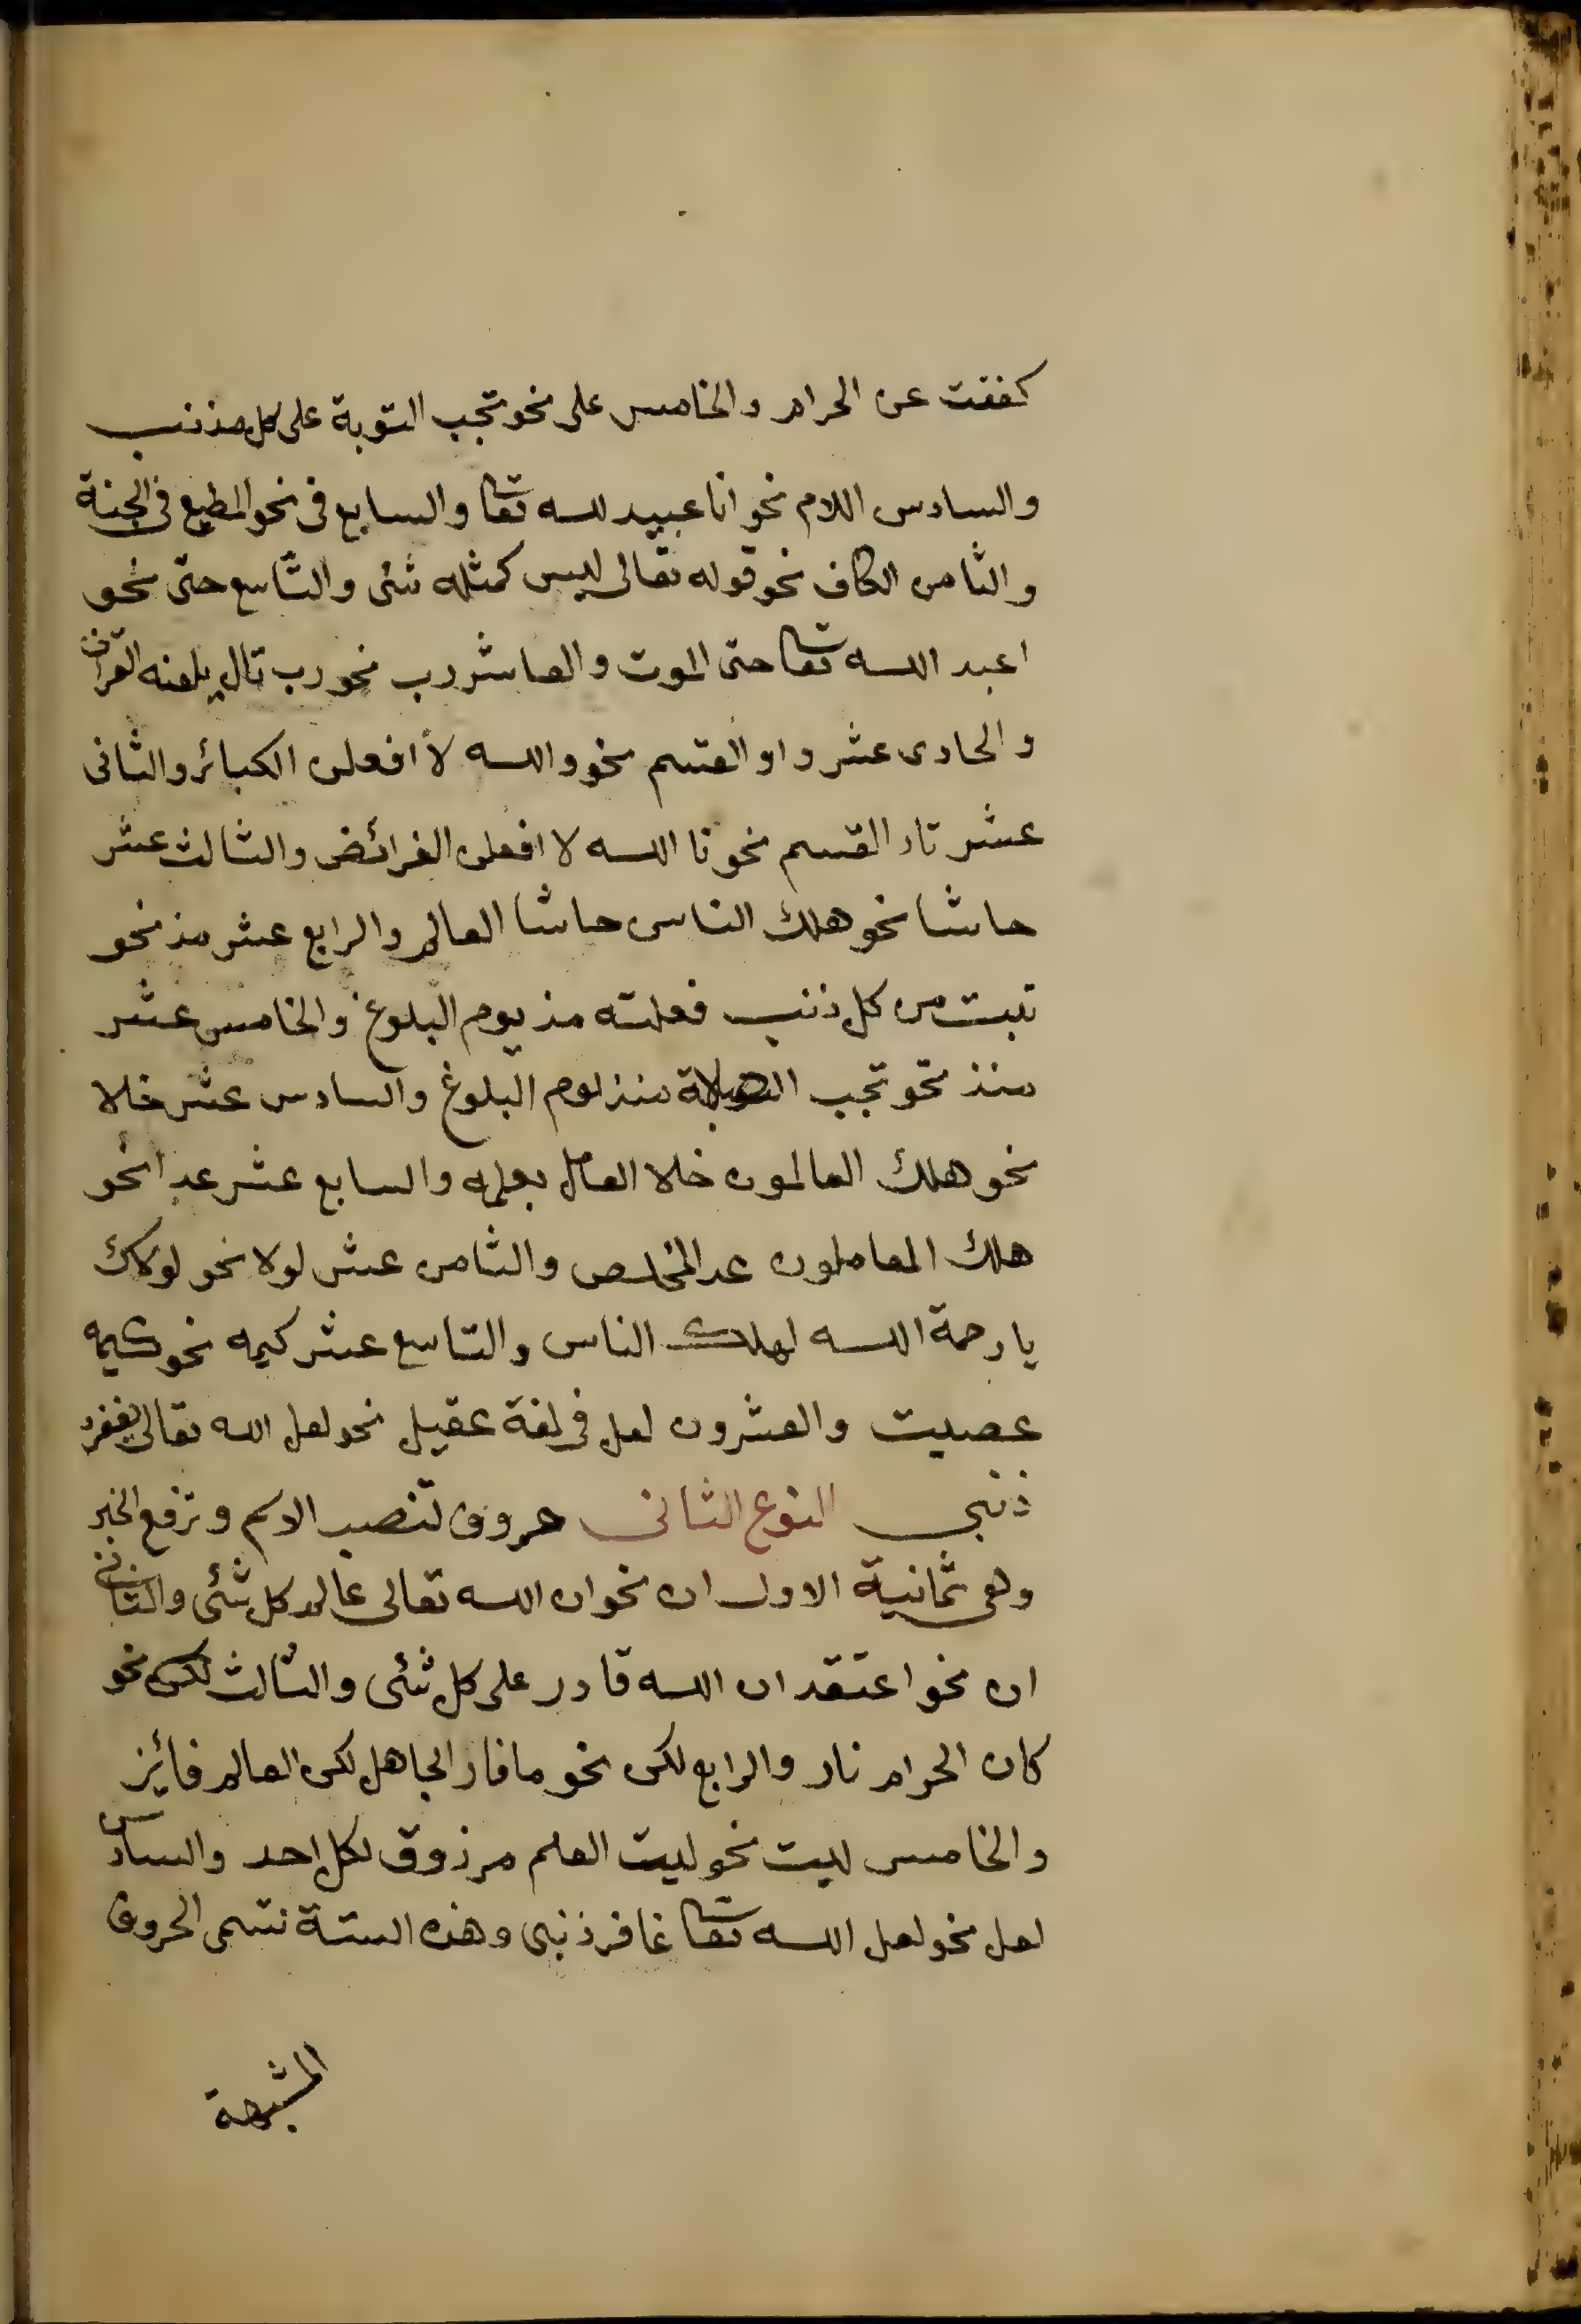 كففت عن الحرام والخامس على نحو تجب التوبة على كل مذنب
والسادس اللام نحو انا عبيد لله تعا والسابع فى نحو المطيع فى الجنة
والثامن الكاف نحو قوله تعالى ليس كمثله شئ والتاسع حتى نحو
اعبد الله تعا حتى الموت والعاشر رب نحو رب تال يلعنه القرآن
والحادى عشر واو القسم نحو والله لا افعلن الكبائر والثانى
عشر تاء القسم نحو تا الله لا افعلن الفرائض والثالث عشر
حاشا نحو هلك الناس حاشا العالم والرابع عشر مذ نحو
تبت من كل ذنب فعلته مذ يوم البلوغ والخامس عشر
منذ نحو تجب الصلاة منذ يوم البلوغ والسادس عشر خلا
نحو هلك العالمون خلا العامل بعلمه والسابع عشر عدا نحو
هلك العاملون عد المخلص والثامن عشر لولا نحو لولاك
يا رحمة الله لهلك الناس والتاسع عشر كيمه نحو كيمه
عصيت والعشرون لعل فى لغة عقيل نحو لعل الله تعالى يغفر
ذنبى النوع الثانى حروف تنصب الاسم وترفع الخبر
وهى ثمانية الاول ان نحو ان الله تعالى عالم كل شئ والثانى
ان نحو اعتقد ان الله قادر على كل شئ والثالث نحو
كان الحرام نار والرابع لكن نحو ما فاز الجاهل لكن العالم فائز
والخامس ليت نحو ليت العلم مرزوق لكل احد والسادس
لعل نحو لعل الله تعا غافر ذنبى وهذه الستة تسمى الحروف
المشبهة